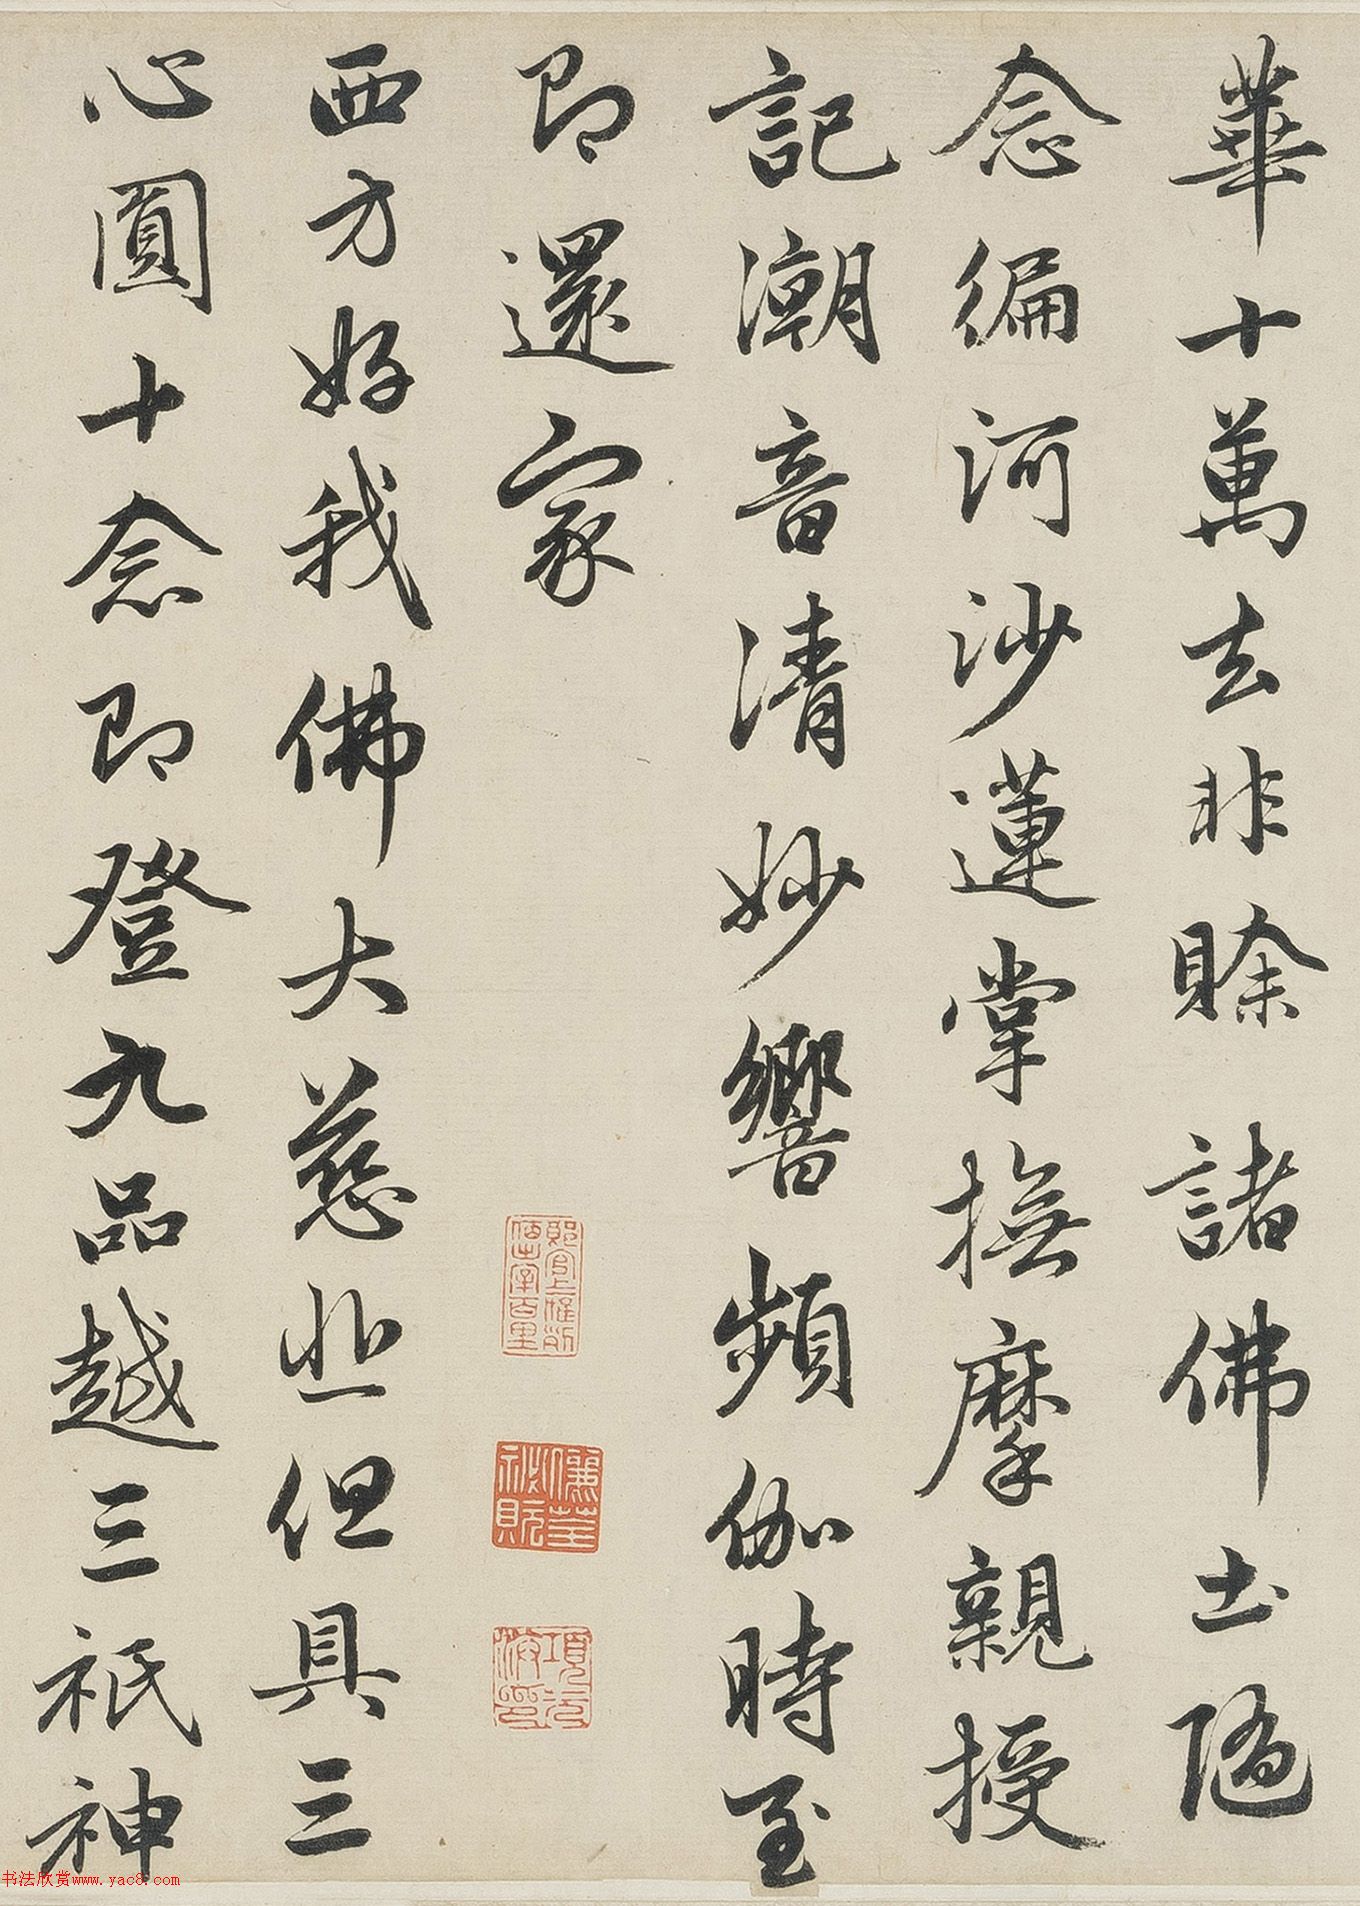 華十萬去非賒諸佛土隨
念徧河沙蓮掌撫摩親授
記潮音清妙響頻伽時至
即還家
西方好我佛大慈悲但具三
心圓十念即登九品越三祇神
項元
汴印
书法欣赏www.yac8.com